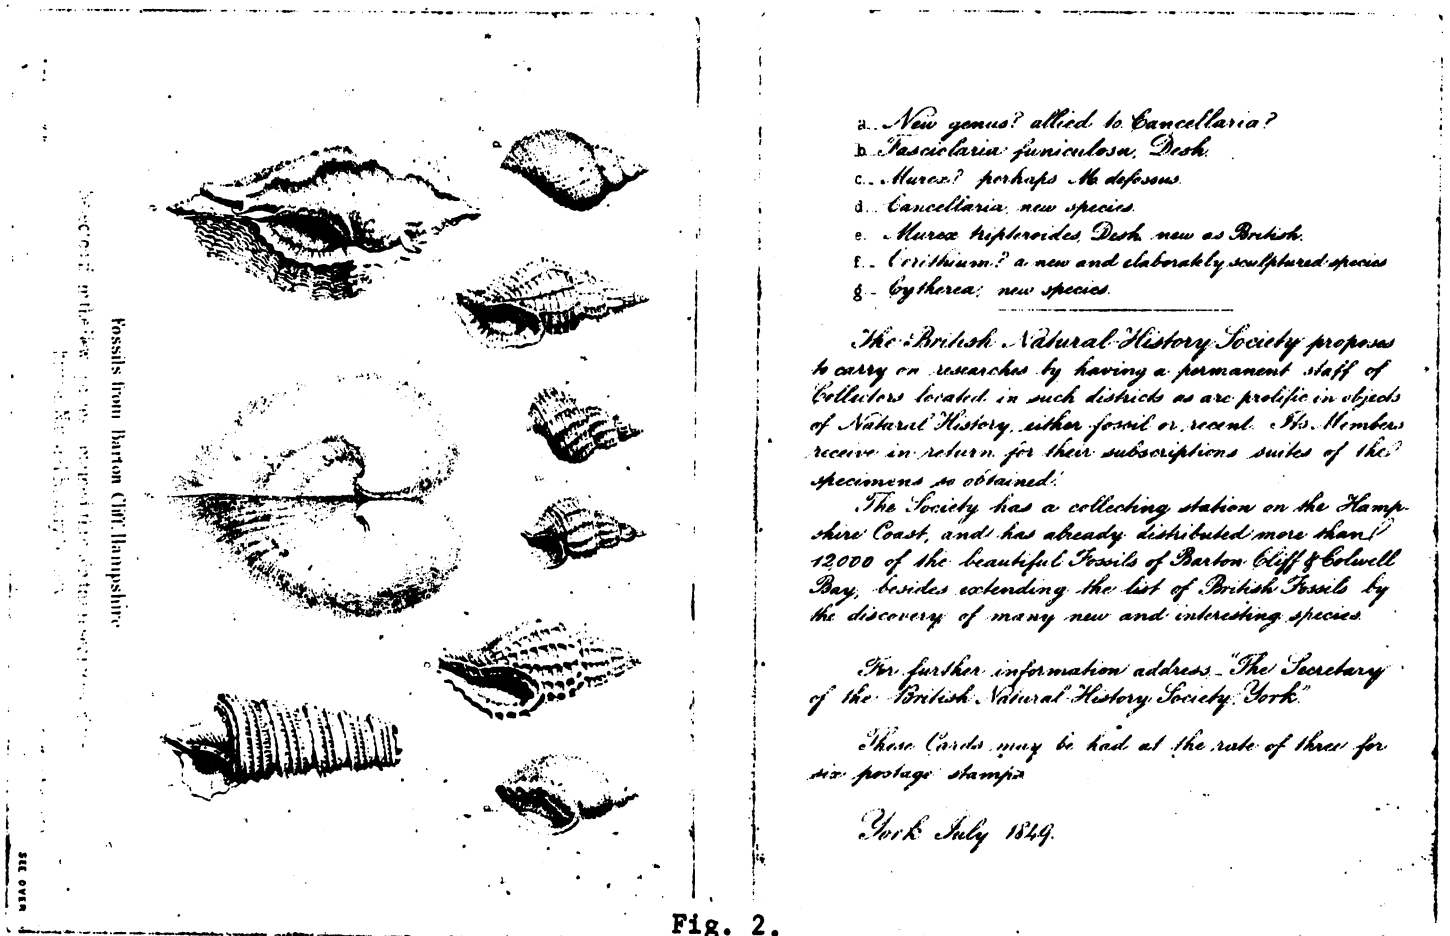 Fossils from Barton Cliff, Hampshire
SEE OVER
a. New genus? allied to Cancellaria?
b Fasciolaria funiculosa, Desh.
c. Murex? perhaps M. defossus.
d. Cancellaria, new species.
e. Murex tripteroides, Desh. new as British.
f. Cerithium? a new and elaborately sculptured species
g. Cytherea; new species.
The British Natural History Society proposes
to carry on researches by having a permanent staff of
Collectors located in such districts as are prolific in objects
of Natural History, either fossil or recent. Its Members
receive in return for their subscriptions suites of the
specimens so obtained.
The Society has a collecting station on the Hamp-
shire Coast, and has already distributed more than
12,000 of the beautiful Fossils of Barton Cliff & Colwell
Bay, besides extending the list of British Fossils by
the discovery of many new and interesting species.
For further information address "The Secretary
of the British Natural History Society, York".
These Cards may be had at the rate of three for
six postage stamps
York July 1849.
Fig. 2.